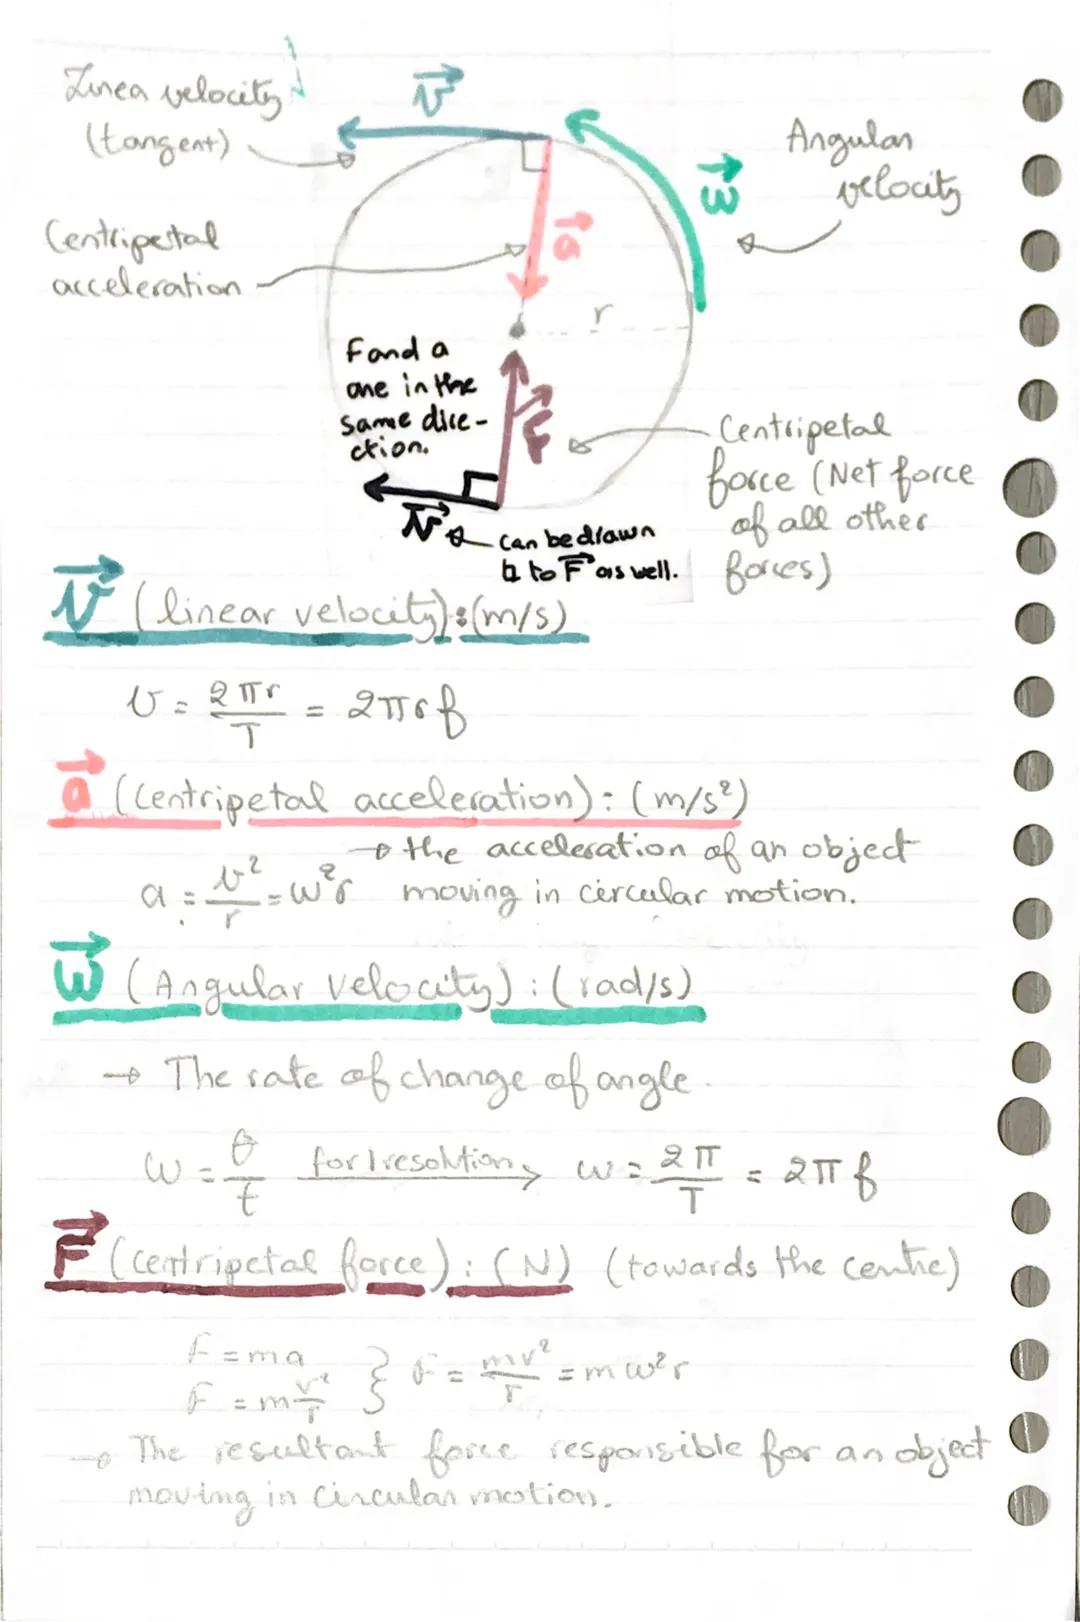 Linea velocity
(tangent)
v
Angular
velocity
ω
Centripetal
acceleration
a
r
F and a
one in the
same dire-
ction.
F
Centripetal
force (Net force
of all other
forces)
v
can be drawn
to F as well.
v (linear velocity): (m/s)
v = 2πr/T = 2πrf
a (Centripetal acceleration): (m/s²)
→ the acceleration of an object
a = v²/r = ω²r moving in circular motion.
ω (Angular velocity): (rad/s)
→ The rate of change of angle.
ω = θ/t for 1 resolution → ω = 2π/T = 2πf
F (centripetal force): (N) (towards the centre)
F = ma
F = m v²/r } F = mv²/r = mω²r
→ The resultant force responsible for an object
moving in circular motion.